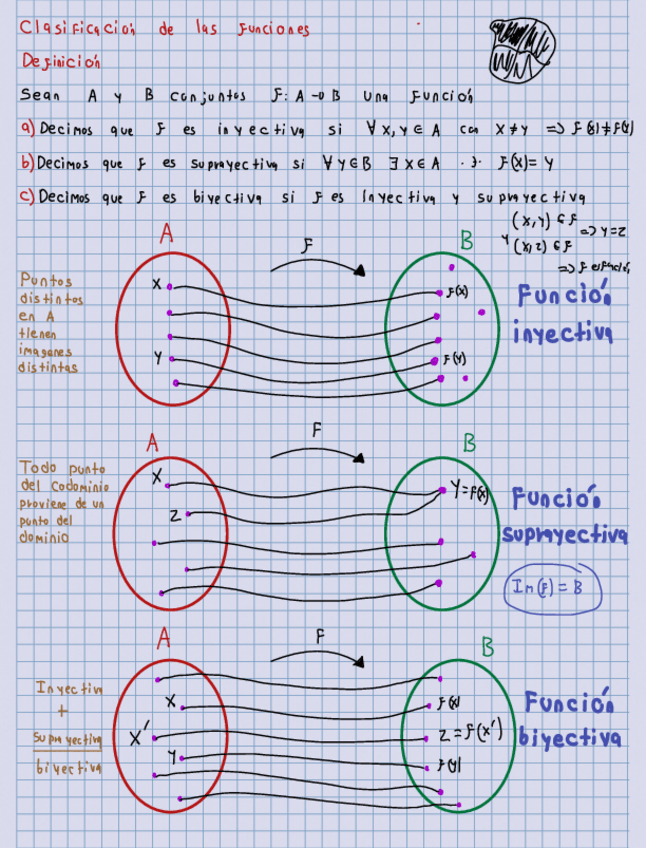 Clasificación de las Funciones
Definición
Sean A y B conjuntos F: A → B una Función
a) Decimos que F es inyectiva si ∀ x, y ∈ A con x ≠ y => F(x) ≠ F(y)
b) Decimos que F es suprayectiva si ∀ y ∈ B ∃ x ∈ A ∙﹦∙ F(x) = y
c) Decimos que F es biyectiva si F es Inyectiva y suprayectiva
(x, y) ∈ F
y (x, z) ∈ F => y = z
=> F es función
A
F
B
Puntos
distintos
en A
tienen
imagenes
distintas
x
y
F(x)
F(y)
Función
inyectiva
A
F
B
Todo punto
del Codominio
proviene de un
punto del
dominio
x
z
y = F(x)
Función
suprayectiva
Im(F) = B
A
F
B
Inyectiva
+
suprayectiva
biyectiva
x
x'
y
F(x)
z = F(x')
F(y)
Función
biyectiva